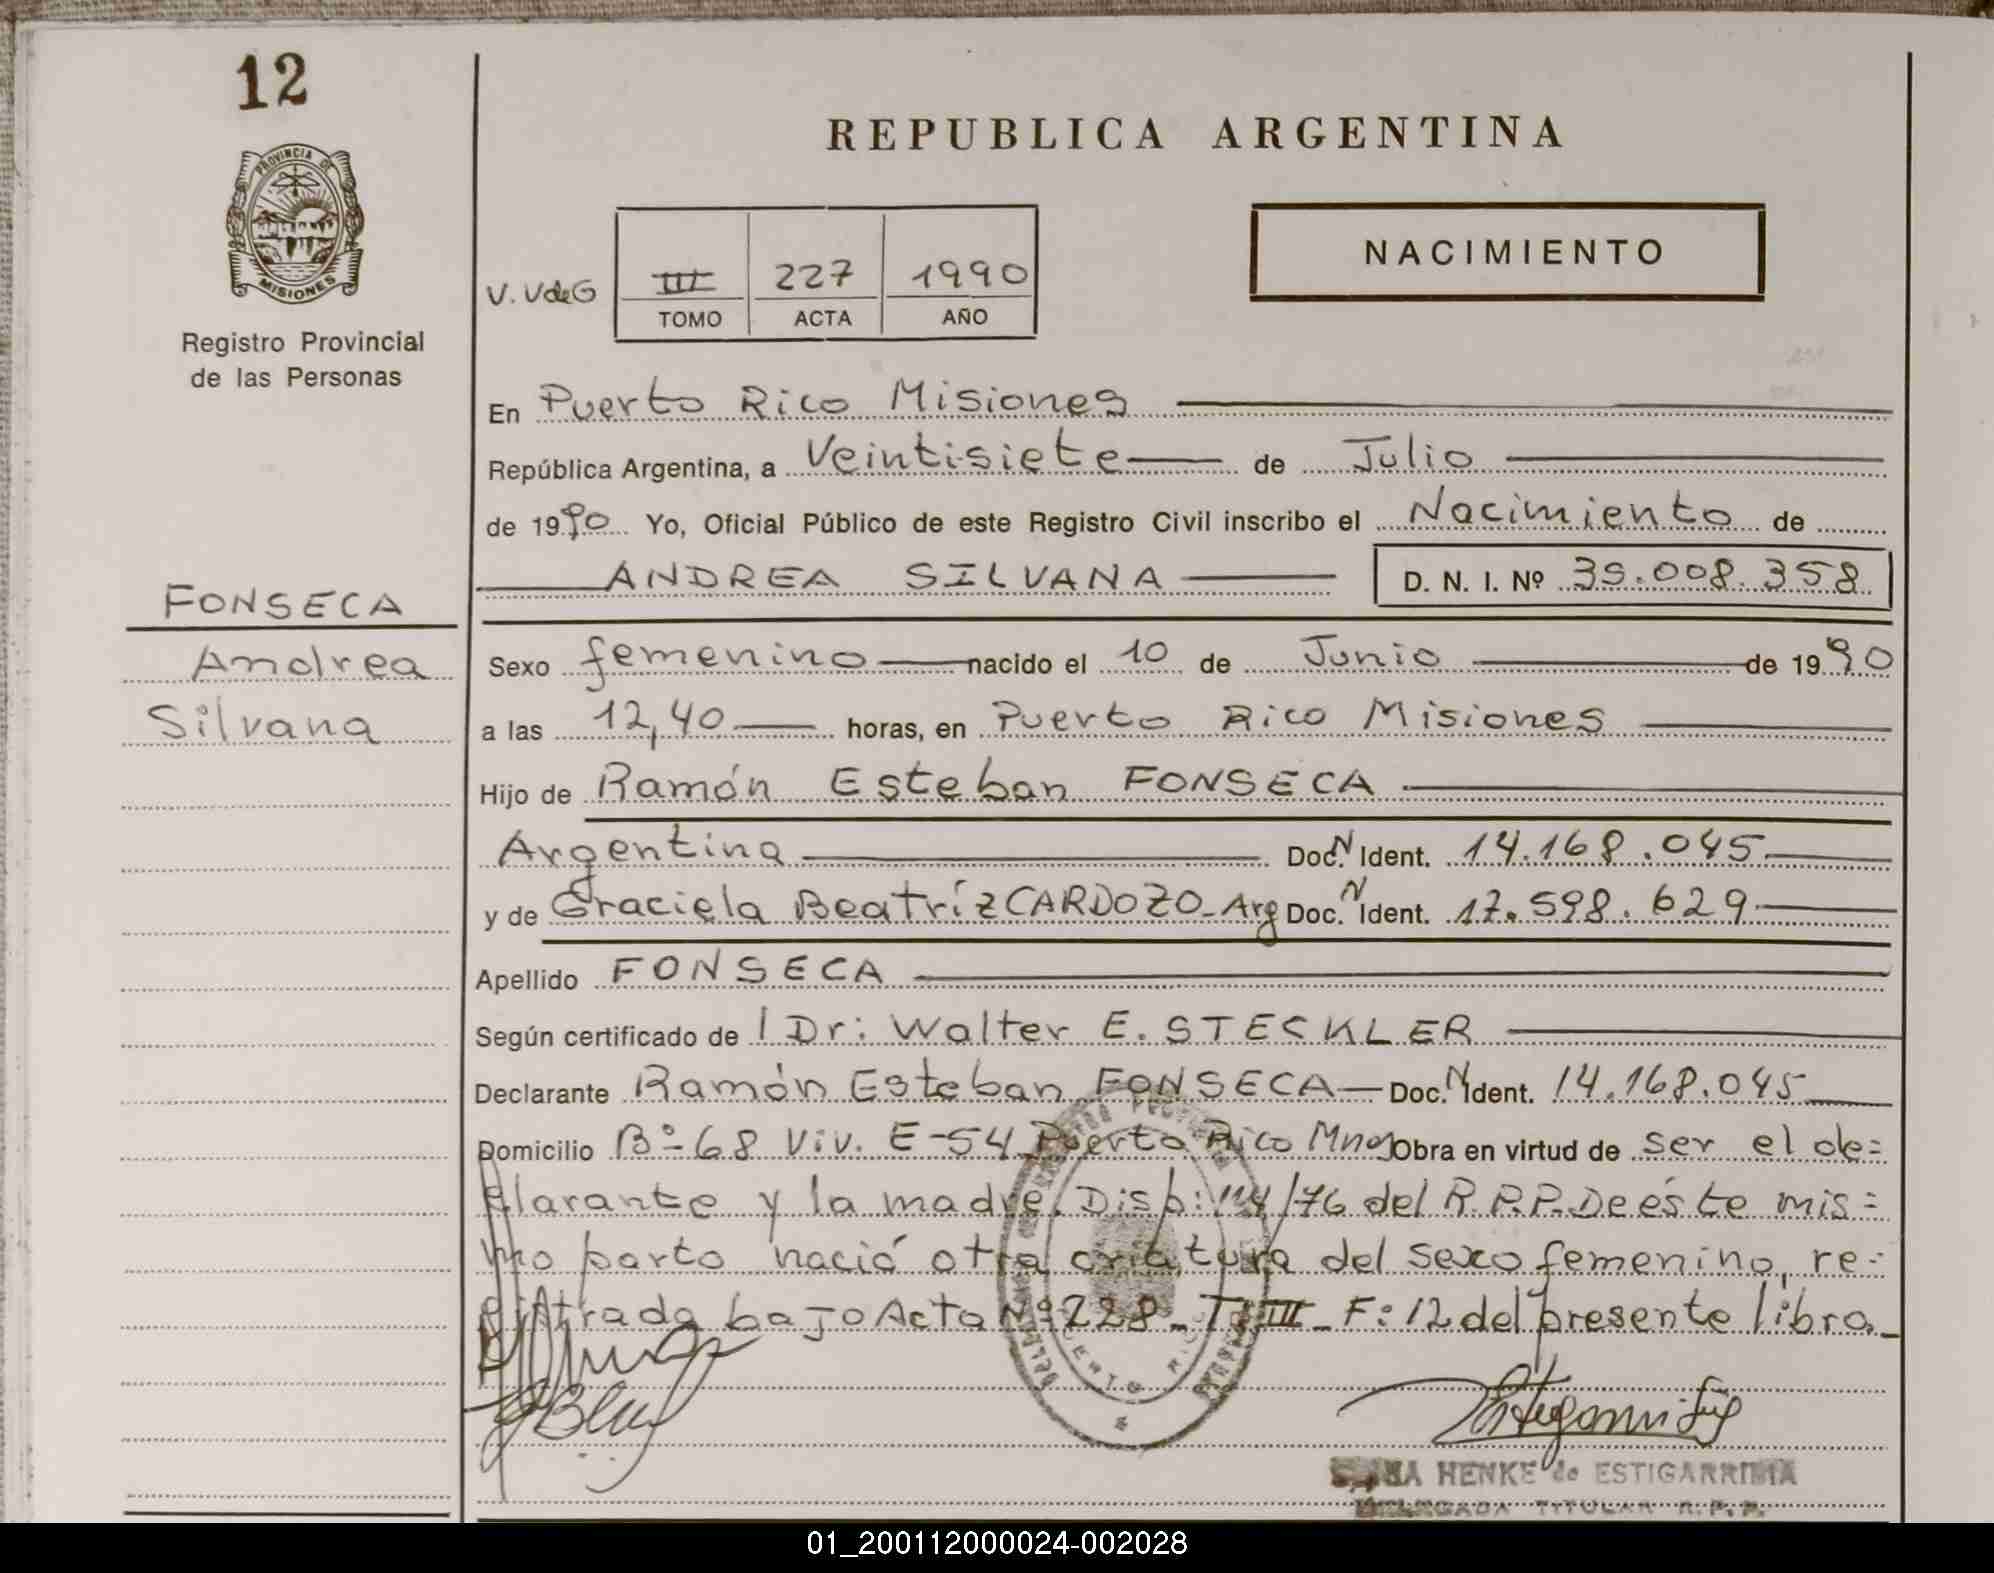 12
PROVINCIA DE
MISIONES
Registro Provincial
de las Personas
REPUBLICA ARGENTINA
NACIMIENTO
V. VdeG
III 227 1990
TOMO ACTA AÑO
En Puerto Rico Misiones
República Argentina, a Veintisiete de Julio
de 1990 Yo, Oficial Público de este Registro Civil inscribo el Nacimiento de
ANDREA SILVANA D. N. I. Nº 35.008.358
FONSECA
Andrea
Silvana
Sexo femenino nacido el 10 de Junio de 1990
a las 12,40 horas, en Puerto Rico Misiones
Hijo de Ramón Esteban FONSECA
Argentina Doc. N Ident. 14.168.045
y de Graciela Beatríz CARDOZO_Arg Doc. N Ident. 17.598.629
Apellido FONSECA
Según certificado de l Dr: Walter E. STECKLER
Declarante Ramón Esteban FONSECA Doc. N Ident. 14.168.045
Domicilio Bº-68 Viv. E-54 Puerto Rico Mnes Obra en virtud de ser el de=
clarante y la madre. Disp: 114/76 del R.P.P. De éste mis=
mo parto nació otra criatura del sexo femenino, re-
gistrada bajo Acta Nº 228_T: III_F: 12 del presente libro_
PUERTO RICO
HENKE de ESTIGARRIBIA
DELEGADA TITULAR R.P.P.
01_200112000024-002028